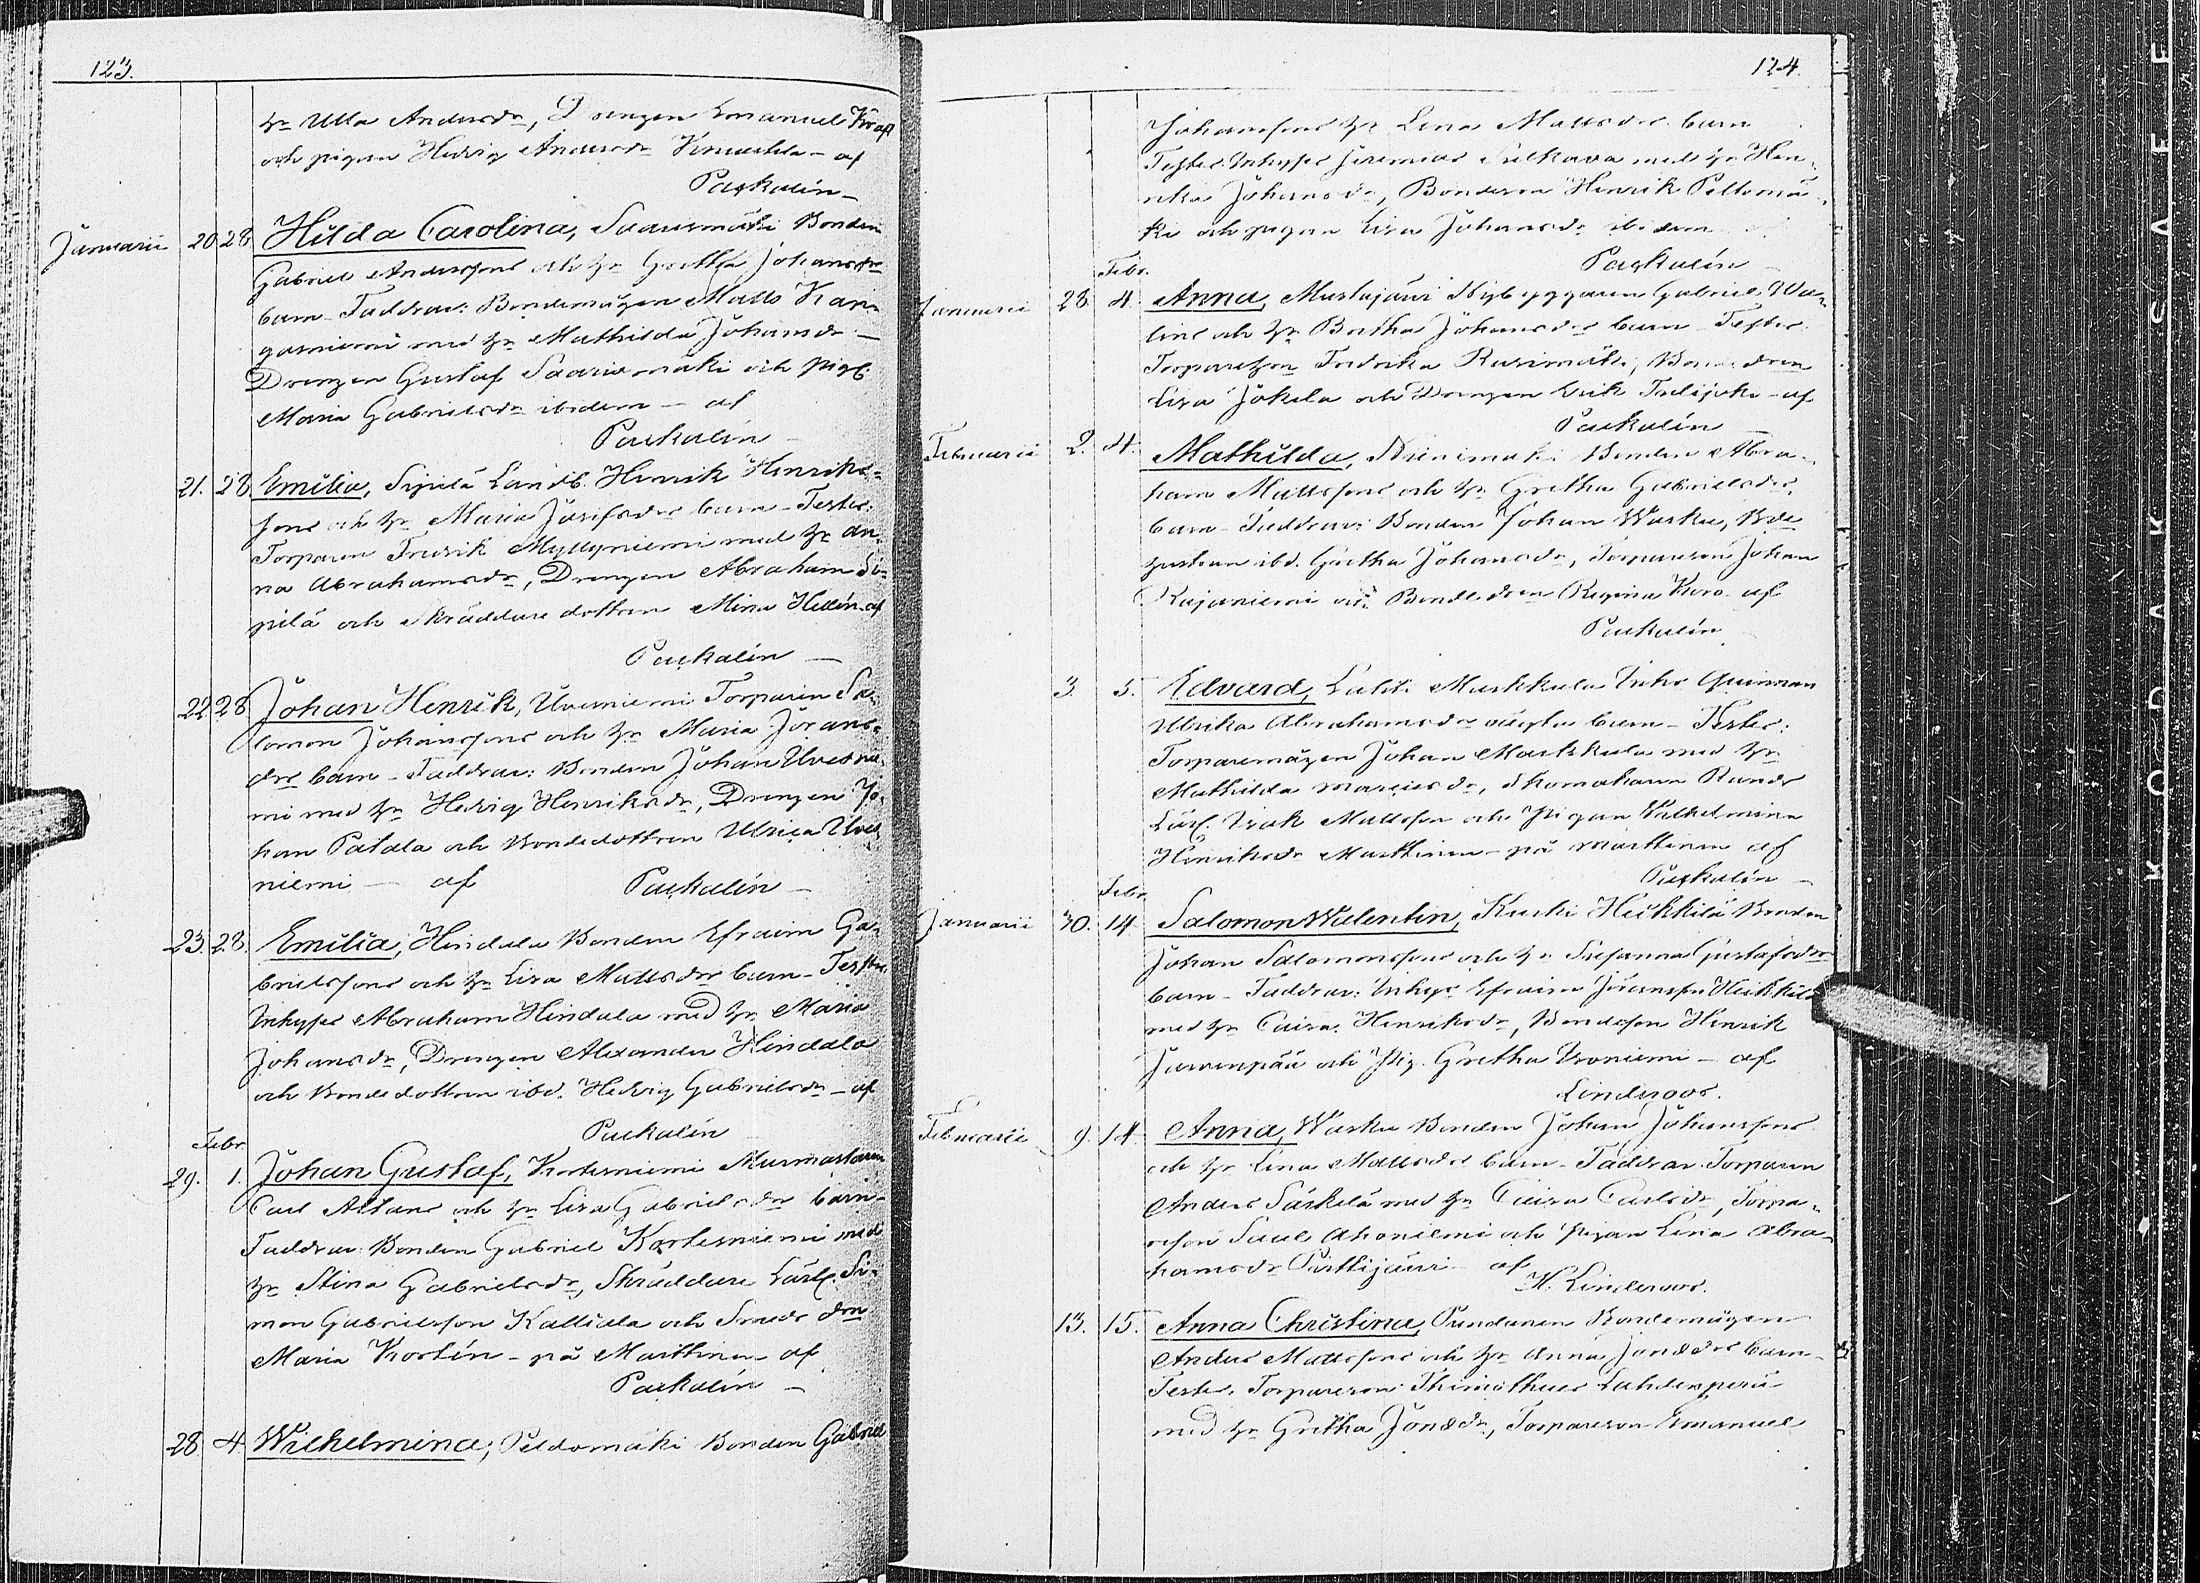 123.
hr Ulla Andersdr, Drengen Emanuel Kraft
och pigan Hedvig Andersdr - af
Paskalín
Januarii 20 28 Hilda Carolina, Saarimäki Bonden
Gabriel Anderssons och hr Gretha Johansdrs
barn - Faddrar: Bondemågen Matts Kan-
gasniemi med hr Mathilda Johansdr -
Drengen Gustaf Saarimäki och pig.
Maria Gabrielsdr ibidem - af
Paskalín
21. 28 Emilia, Sipilä Landb. Henrik Henriks-
sons och hr Maria Josefsdrs barn - Testes:
Torparen Fredrik Myllyniemi med hr An-
na Abrahamsdr, Drengen Abraham Si-
pilä och Skräddare dottren Mina Hellén af
Paskalín
22 28 Johan Henrik, Uvesniemi Torparen Sa-
lomon Johanssons och hr Maria Jörans-
drs barn - Faddrar: Bonden Johan Uvesnie-
mi med hr Hedvig Henriksdr, Drengen Jo-
han Patala och Bondedottren Ulrica Uves-
niemi - af Paskalín
23. 28. Emilia, Hindala Bonden Efraim Ga-
brielssons och hr Lisa Mattsdrs barn - Testes
Inhyses Abraham Hindala med hr Maria
Johansdr, Drengen Alexander Hindala
och Bondedottren ibd. Hedvig Gabrielsdr - af
Paskalín
Febr.
29. 1. Johan Gustaf, Kortesniemi Murmästaren
Carl Altans och hr Lisa Gabrielsdrs barn -
Faddrar: Bonden Gabriel Kortesniemi med
hr Stina Gabrielsdr, Skräddare Lärl. Si-
mon Gabrielsson Kalliala och Smeds drn
Maria Kortén - på Marttinen - af
Paskalín
28. 4. Wilhelmina, Peldomäki Bonden Gabriel
124.
Johanssons hr Lena Mattsdrs barn
Testes. Inhyses Jeremias Sulkava med hr Hen-
rika Johansdr, Bondeson Henrik Peltomä-
ki och pigan Lisa Johansdr ibidem
Paskalín
Febr.
Januarii 28. 4. Anna, Mustajärvi Nybyggaren Gabriel Wa-
lins och hr Bertha Johansdrs barn - Testes.
Torparehrn Fredrika Rasimäki, Bondedren
Lisa Jokela och Drengen Erik Tulijoki - af
Paskalín
Februarii 2. 4. Mathilda, Niinimäki Bonden Abra-
ham Mattssons och hr Gretha Gabrielsdrs
barn - Faddrar: Bonden Johan Wasku, Bde
hustrun ibd. Gretha Johansdr, Torpareson Johan
Rajaniemi och Bondedren Regina Koro - af
Paskalín
3. 5. Edvard, Lahti Markkula Inhs Quinnan
Ulrika Abrahamsdr oägta barn - Testes:
Torparemågen Johan Markkula med hr
Mathilda Marcusdr, Skomakaren Rands
Lärl. Isak Mattsson och Pigan Wilhelmina
Henriksdr Marttinen - på Marttinen af
Paskalín
Febr.
Januarii 30. 14 Salomon Walentin, Kurki Heikkilä Bonden
Johan Salomonssons och hr Susanna Gustafsdrs
barn - Faddrar: Inhys Efraim Jöransson Heikkilä
med hr Caisa Henriksdr, Bondeson Henrik
Järvenpää och Pig. Gretha Isoniemi - af
Linderoos.
Februarii 9. 14 Anna, Wasku Bonden Johan Johanssons
och hr Lena Mattsdrs barn - Faddrar Torparen
Anders Säskelä med hr Caisa Carlsdr, Torpa-
reson Saul Ahoniemi och pigan Lena Abra-
hamsdr - af
H. Linderoos.
13. 15. Anna Christina, Bondemågen
Anders Mattssons och hr Anna Jonædrs barn -
Testes. Torpareson Thimotheus Lahdenperä
med hr Gretha Jonædr, Torpareson Emanuel
KODAK SAFE